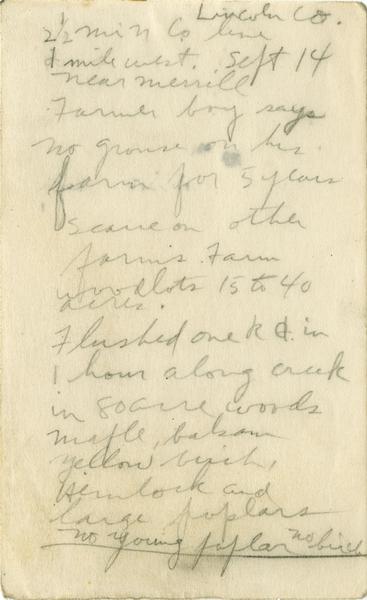 Lincoln Co.
2½ mi N Co line
1 mile west. Sept 14
near merrill
Farmer boy says
no grouse on his
farm for 5 years
Scarce on other
farms. Farm
woodlots 15 to 40
acres.
Flushed one in
1 hour along creek
in 80 acre woods
maple, balsam
yellow birch,
Hemlock and
large poplars
no young poplar no birch